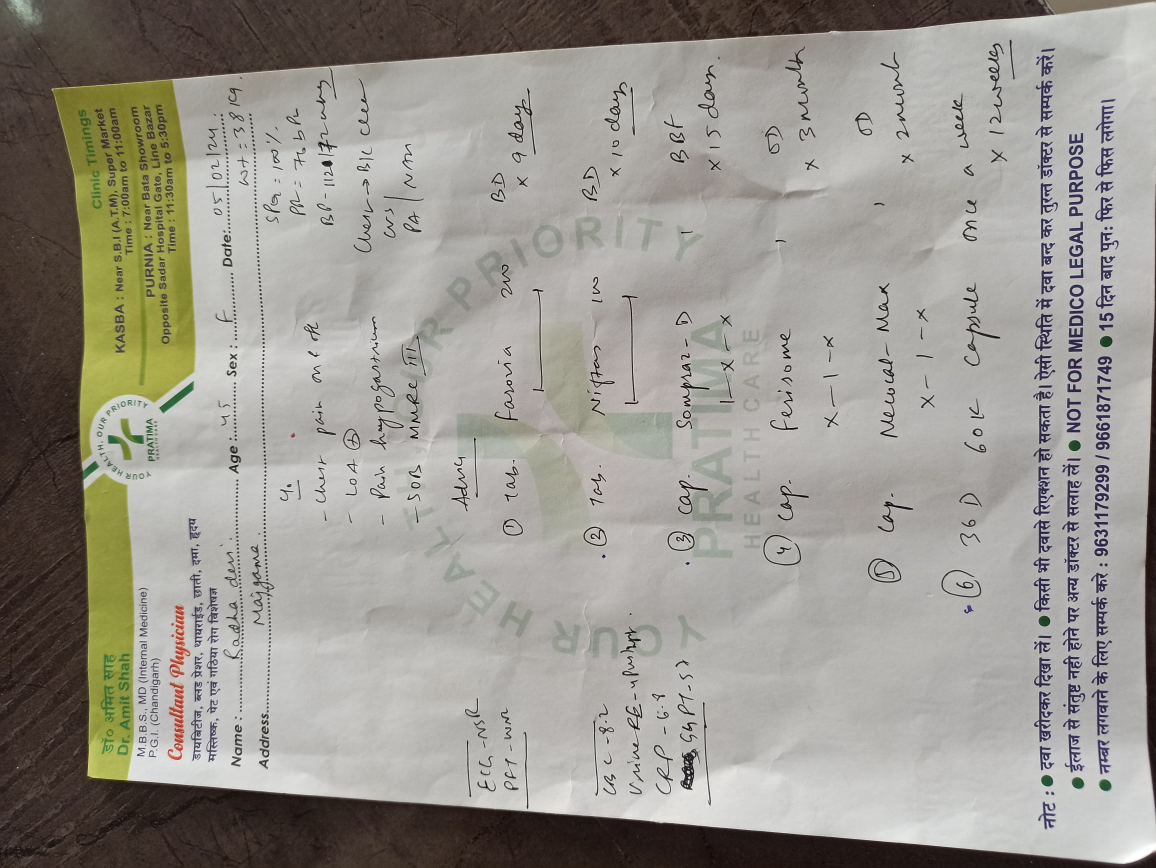 डॉ० अमित साह
Dr. Amit Shah
M.B.B.S., MD (Internal Medicine)
P.G.I. (Chandigarh)
Consultant Physician
डायबिटीज, ब्लड प्रेशर, थायराईड, छाती, दमा, हृदय
मस्तिष्क, पेट एवं गठिया रोग विशेषज्ञ
YOUR HEALTH, OUR PRIORITY
PRATIMA
HEALTH CARE
Clinic Timings
KASBA : Near S.B.I (A.T.M), Super Market
Time : 7:00am to 11:00am
PURNIA : Near Bata Showroom
Opposite Sadar Hospital Gate, Line Bazar
Time : 11:30am to 5:30pm
Name : Radha devi Age : 45 Sex : F Date: 05/02/24
Address Majgama Wt = 38 kg
SPO2 = 100%
PR = 76 bpm
BP = 112/72 mmHg
Chest → B/L clear
CVS
PA / NAD
- Chest pain on & off
- LOA (+)
- Pain hypogastrium
- SOB MMRC III
Advice
① Tab. Farovia 200 BD
x 9 days
② Tab. Niftas 100 BD
x 10 days
③ Cap. Sompraz-D 1 BBF
1-x-x x 15 days.
④ Cap. Ferisome 1 OD
x-1-x x 3 month
⑤ Cap. Newcal-Max 1 OD
x-1-x x 2 month
⑥ 36D 60K capsule once a week
x 12 weeks
ECG - NSR
PFT - WNL
CBC - 8.2
Urine RE -
CRP - 6.8
SGPT - 57
YOUR HEALTH OUR PRIORITY
PRATIMA
HEALTH CARE
नोट : ● दवा खरीदकर दिखा लें। ● किसी भी दवासे रिएक्शन हो सकता है। ऐसी स्थिति में दवा बन्द कर तुरन्त डॉक्टर से सम्पर्क करें।
● ईलाज से संतुष्ट नही होने पर अन्य डॉक्टर से सलाह लें। ● NOT FOR MEDICO LEGAL PURPOSE
● नम्बर लगवाने के लिए सम्पर्क करे : 9631179299 / 9661871749 ● 15 दिन बाद पुन: फिर से फिस लगेगा।